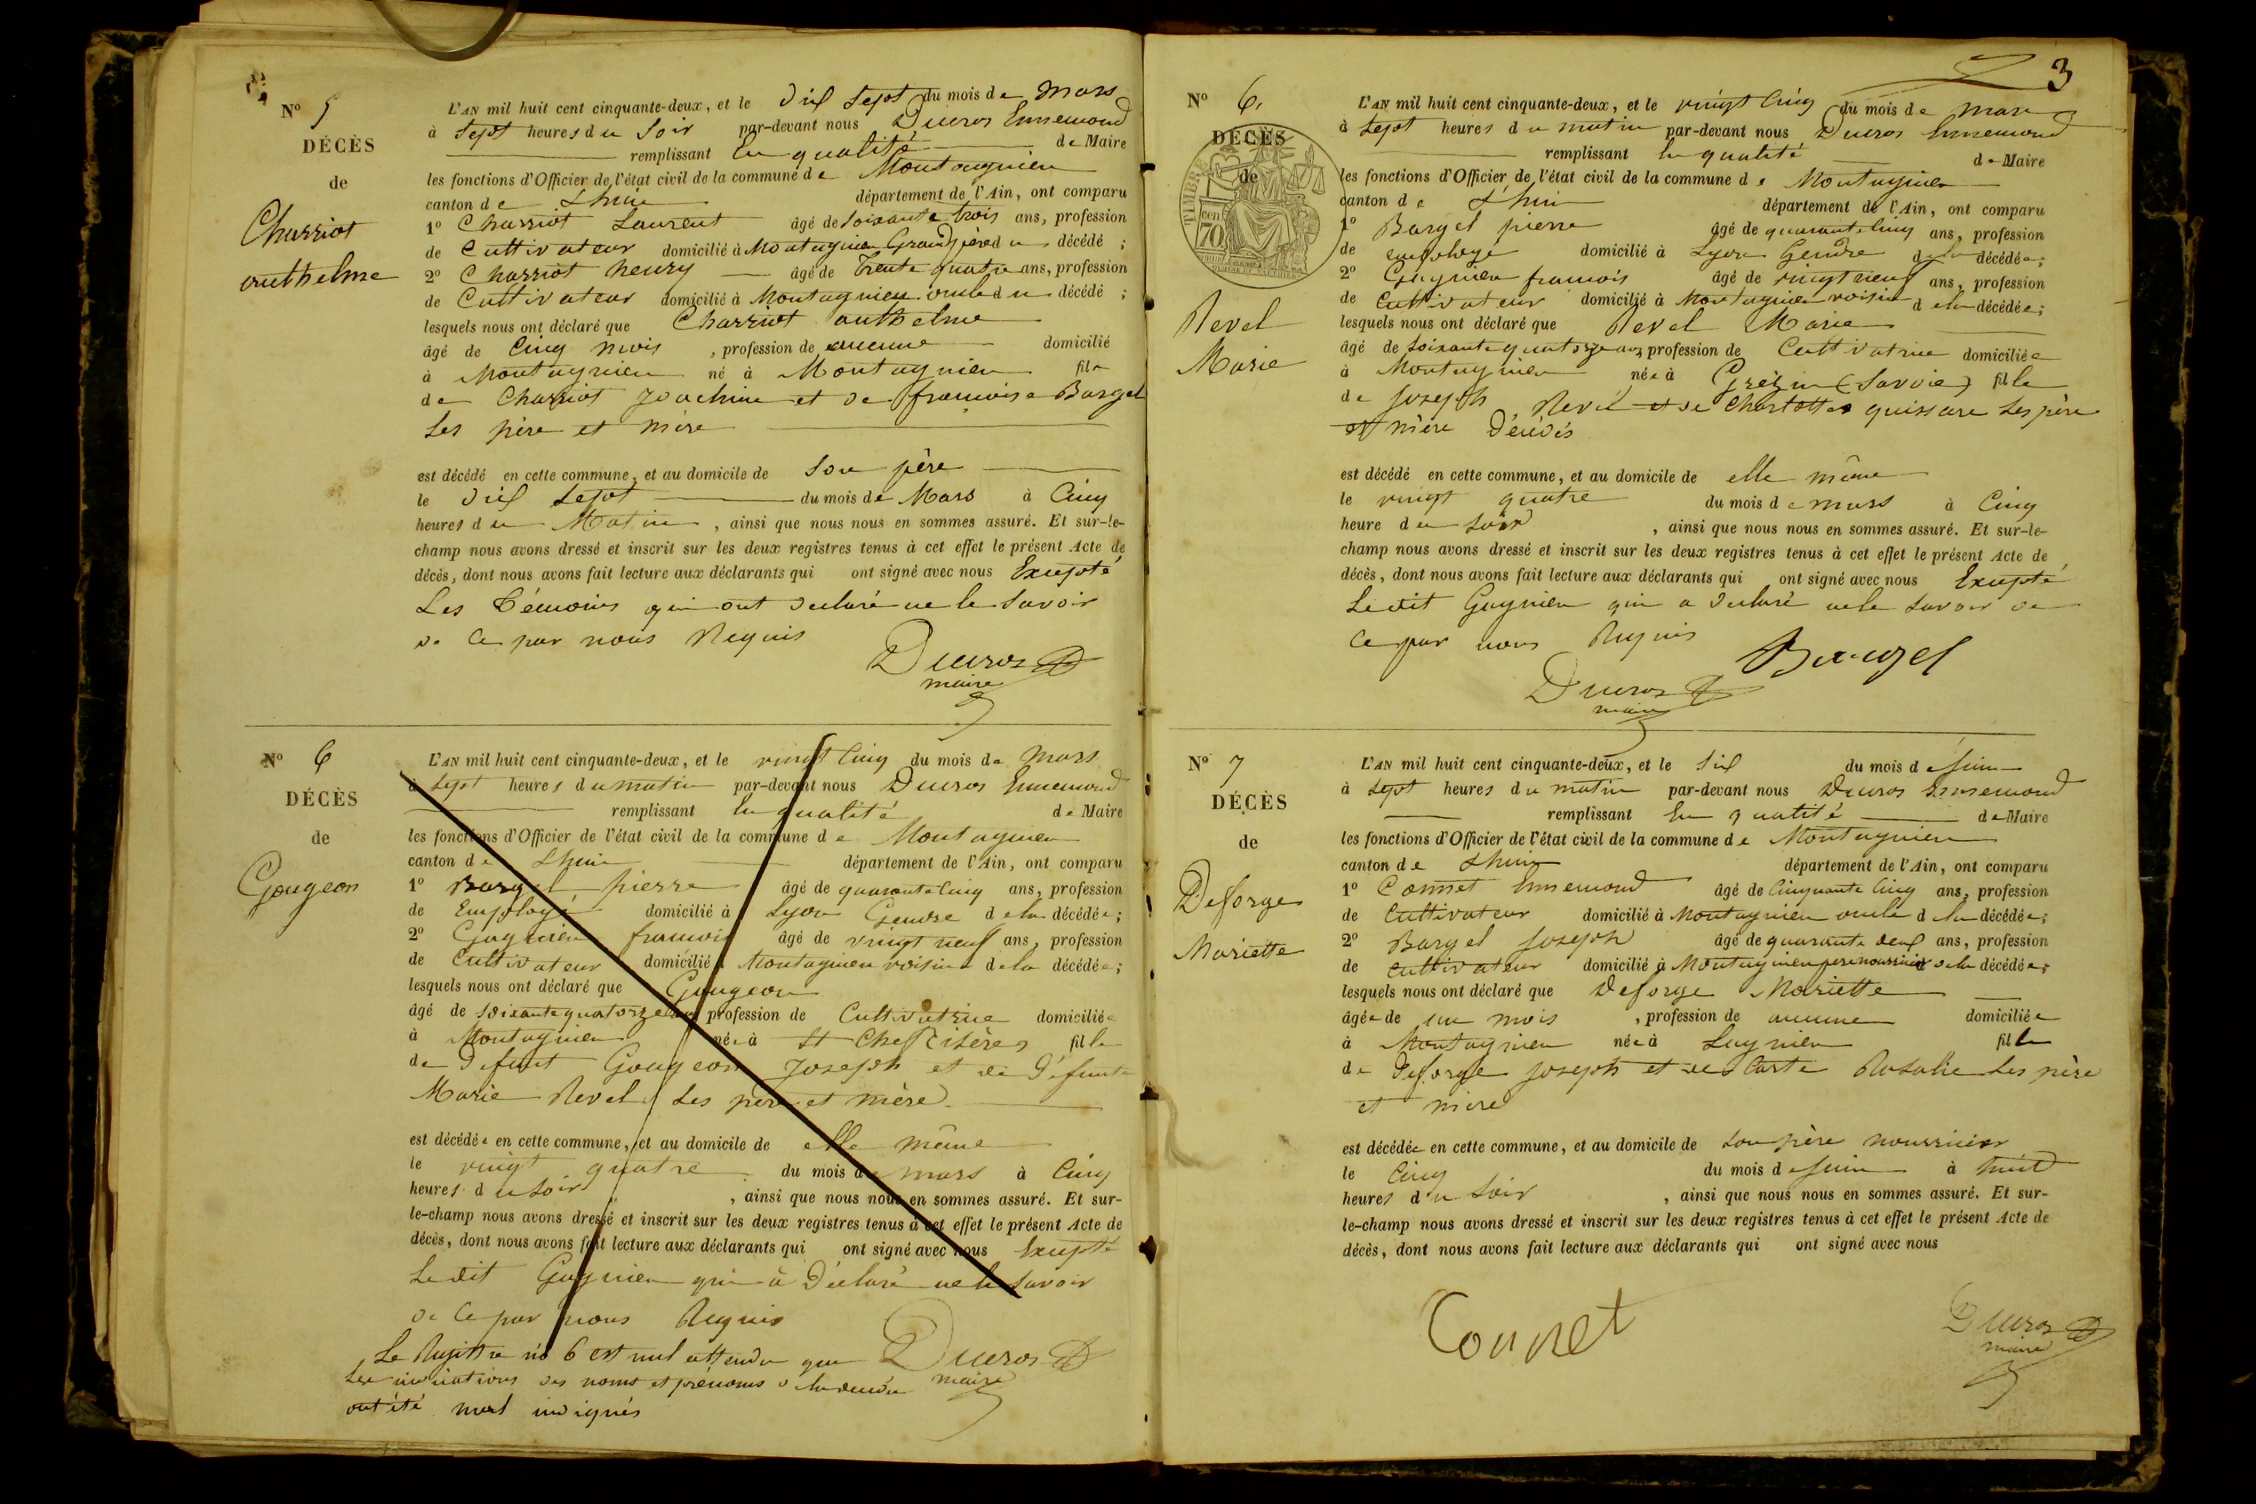 Nº 5
DÉCÈS
de
Charriot
anthelme
L'AN mil huit cent cinquante-deux, et le dix sept du mois de Mars
à Sept heures du Soir par-devant nous Ducros Ennemond
remplissant En qualité de Maire
les fonctions d'Officier de l'état civil de la commune de Montagnieu
canton de Lhuis département de l'Ain, ont comparu
1º Charriot Laurent âgé de soixante trois ans, profession
de Cultivateur domicilié à Montagnieu Grand père du décédé ;
2º Charriot henry âgé de Trente quatre ans, profession
de Cultivateur domicilié à Montagnieu oncle du décédé ;
lesquels nous ont déclaré que Charriot anthelme
âgé de Cinq mois , profession de aucune domicilié
à Montagnieu né à Montagnieu fils
de Charriot Joachim et de françoise Bargel
Ses père et mère
est décédé en cette commune, et au domicile de Son père
le dix Sept du mois de Mars à Cinq
heures du Matin , ainsi que nous nous en sommes assuré. Et sur-le-
champ nous avons dressé et inscrit sur les deux registres tenus à cet effet le présent Acte de
décès, dont nous avons fait lecture aux déclarants qui ont signé avec nous Excepté
Les Témoins qui ont declaré ne le Savoir
de Ce par nous Requis
Ducros
maire
Nº 6
DÉCÈS
de
Gougeon
L'AN mil huit cent cinquante-deux, et le vingt Cinq du mois de Mars
à Sept heures du matin par-devant nous Ducros Ennemond
remplissant En qualité de Maire
les fonctions d'Officier de l'état civil de la commune de Montagnieu
canton de Lhuis département de l'Ain, ont comparu
1º Bargel pierre âgé de quarante Cinq ans, profession
de Employé domicilié à Lyon Gendre de la décédée ;
2º Guynieu francois âgé de vingt neuf ans, profession
de Cultivateur domicilié à Montagnieu voisin de la décédée ;
lesquels nous ont déclaré que Gougeon
âgé de soixante quatorze ans, profession de Cultivatrice domiciliée
à Montagnieu née à St Chef (isère) fille
de Défunt Gougeon Joseph et de Défunte
Marie Revel Ses père et mère
est décédée en cette commune, et au domicile de elle même
le vingt quatre du mois de mars à Cinq
heures du Soir , ainsi que nous nous en sommes assuré. Et sur-
le-champ nous avons dressé et inscrit sur les deux registres tenus à cet effet le présent Acte de
décès, dont nous avons fait lecture aux déclarants qui ont signé avec nous Excepté
Le dit Guynieu qui à Déclaré ne le Savoir
de Ce par nous Requis
Ducros
maire
Le Régistre nº 6 est nul attendu que
Les indications des noms et prénoms de la décédée
ont été mal indiqués
3
Nº 6.
DÉCÈS
de
TIMBRE
70
Revel
Marie
L'AN mil huit cent cinquante-deux, et le vingt Cinq du mois de mars
à Sept heures du matin par-devant nous Ducros Ennemond
remplissant En qualité de Maire
les fonctions d'Officier de l'état civil de la commune de Montagnieu
canton de Lhuis département de l'Ain, ont comparu
1º Bargel pierre âgé de quarante Cinq ans, profession
de employé domicilié à Lyon Gendre de la décédée ;
2º Guynieu francois âgé de vingt neuf ans, profession
de Cultivateur domicilié à Montagnieu voisin de la décédée ;
lesquels nous ont déclaré que Revel Marie
âgé de soixante quatorze ans, profession de Cultivatrice domiciliée
à Montagnieu née à Grésin (Savoie) fille
de Joseph Revel et de Charlotte quissare Ses père
et mère Décédés
est décédé en cette commune, et au domicile de elle même
le vingt quatre du mois de mars à Cinq
heure du Soir , ainsi que nous nous en sommes assuré. Et sur-le-
champ nous avons dressé et inscrit sur les deux registres tenus à cet effet le présent Acte de
décès, dont nous avons fait lecture aux déclarants qui ont signé avec nous Excepté
Le dit Guynieu qui a Declaré ne le Savoir de
Ce par nous Requis
Bargel
Ducros
maire
Nº 7
DÉCÈS
de
Deforge
Mariette
L'AN mil huit cent cinquante-deux, et le Six du mois de Juin
à Sept heures du matin par-devant nous Ducros Ennemond
remplissant En qualité de Maire
les fonctions d'Officier de l'état civil de la commune de Montagnieu
canton de Lhuis département de l'Ain, ont comparu
1º Connet Ennemond âgé de Cinquante Cinq ans, profession
de Cultivateur domicilié à Montagnieu oncle de la décédée ;
2º Bargel Joseph âgé de quarante deux ans, profession
de Cultivateur domicilié à Montagnieu pere nourricier de la décédée ;
lesquels nous ont déclaré que Deforge Mariette
âgée de un mois , profession de aucune domiciliée
à Montagnieu née à Lagnieu fille
de Deforge Joseph et de Carte Rosalie Ses père
et mère
est décédée en cette commune, et au domicile de Son père nourricier
le Cinq du mois de Juin à huit
heures du Soir , ainsi que nous nous en sommes assuré. Et sur-
le-champ nous avons dressé et inscrit sur les deux registres tenus à cet effet le présent Acte de
décès, dont nous avons fait lecture aux déclarants qui ont signé avec nous
Connet
Ducros
maire